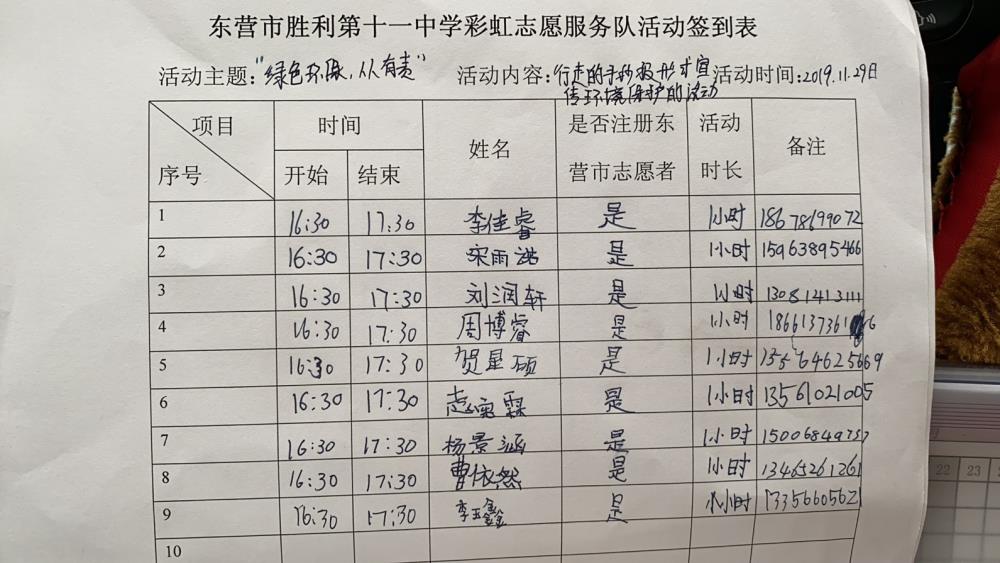 东营市胜利第十一中学彩虹志愿服务队活动签到表
活动主题:"绿色环保,从有责" 活动内容:行走的手抄报形式宣传环境保护的活动 活动时间:2019.11.29日
项目 序号 时间 姓名 是否注册东营市志愿者 活动时长 备注
开始 结束
1 16:30 17:30 李佳睿 是 1小时 18678699072
2 16:30 17:30 宋雨浩 是 1小时 15963895466
3 16:30 17:30 刘润轩 是 1小时 13081413111
4 16:30 17:30 周博睿 是 1小时
5 16:30 17:30 贺星硕 是 1小时
6 16:30 17:30 是 1小时 13561021005
7 16:30 17:30 杨景涵 是 1小时 15006849757
8 16:30 17:30 曹依然 是 1小时 13465261261
9 16:30 17:30 李玉鑫 是 1小时
10
22 23